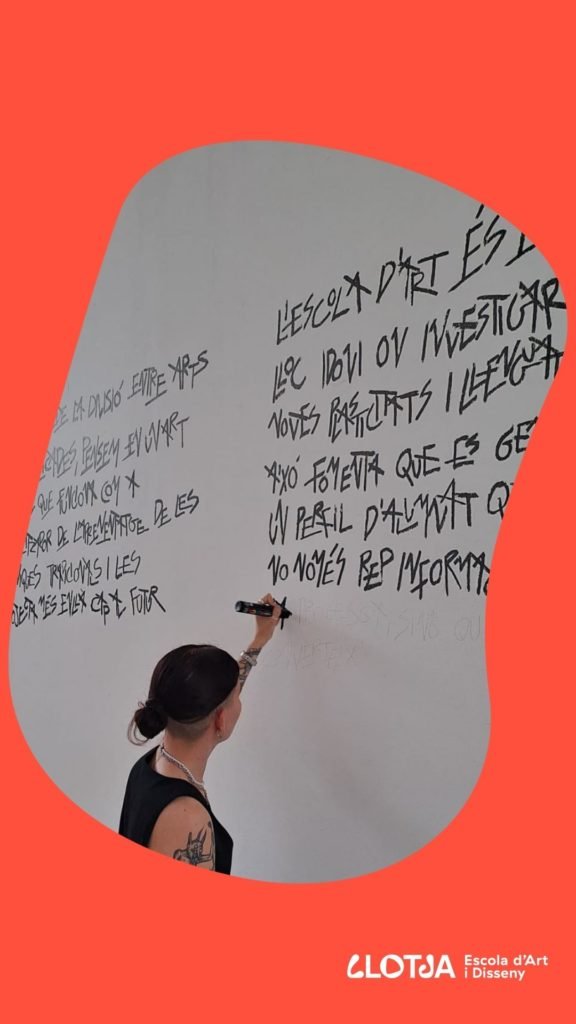 DE LA DIVISIÓ ENTRE ARTS
PENSEM EN UN ART
QUE FUNCIONA COM A
DE L'APRENENTATGE DE LES
TRADICIONALS I LES
MÉS ENLLÀ CAP AL FUTUR
L'ESCOLA D'ART ÉS
LLOC IDONI ON INVESTIGAR
NOVES PLASTICITATS I
AIXÓ FOMENTA QUE ES GE
UN PERFIL D'ALUMNAT Q
NO NOMÉS REP INFORMA
SINÓ QU
LLOTJA Escola d'Art
i Disseny